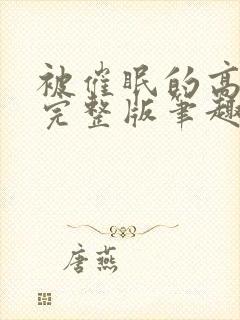 被催眠的高
完整版笔趣
唐燕